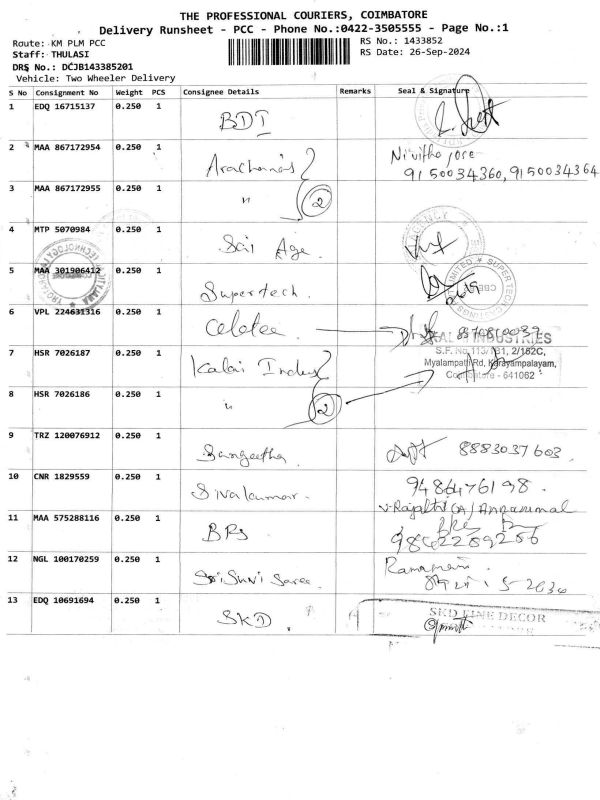 THE PROFESSIONAL COURIERS, COIMBATORE
Delivery Runsheet - PCC - Phone No.:0422-3505555 - Page No.:1
Route: KM PLM PCC
RS No.: 1433852
Staff: THULASI
RS Date: 26-Sep-2024
DRS No.: DCJB143385201
Vehicle: Two Wheeler Delivery
S No Consignment No Weight PCS Consignee Details Remarks Seal & Signature
1 EDQ 16715137 0.250 1 BDT
2 MAA 867172954 0.250 1 Nivitha jose
9150034360, 9150034364
3 MAA 867172955 0.250 1 " 2
4 MTP 5070984 0.250 1 Sai Age.
5 MAA 301906412 0.250 1 Supertech.
6 VPL 224631316 0.250 1
INDUSTRIES
S.F. No. 113/131, 2/162C,
Myalampatti Rd, Karayampalayam,
Coimbatore - 641062
7 HSR 7026187 0.250 1 Kalai Indus
8 HSR 7026186 0.250 1 " 2
9 TRZ 120076912 0.250 1 Sangeetha 8883037603
10 CNR 1829559 0.250 1 Sivakumar. 9486476198.
11 MAA 575288116 0.250 1 BRs
12 NGL 100170259 0.250 1
13 EDQ 10691694 0.250 1 SKD.
SKD FINE DECOR